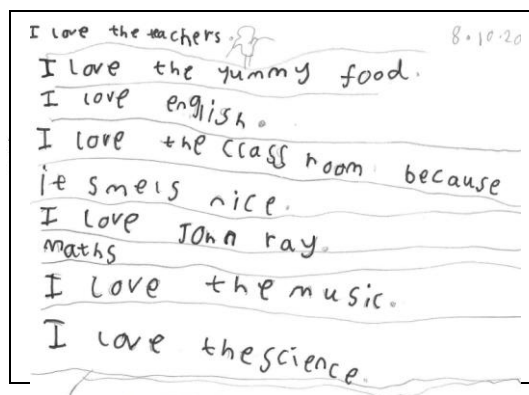 I love the teachers.
8.10.20
I love the yummy food.
I love english.
I love the class room because
it smels nice.
I love John ray.
maths
I love the music.
I love the science.